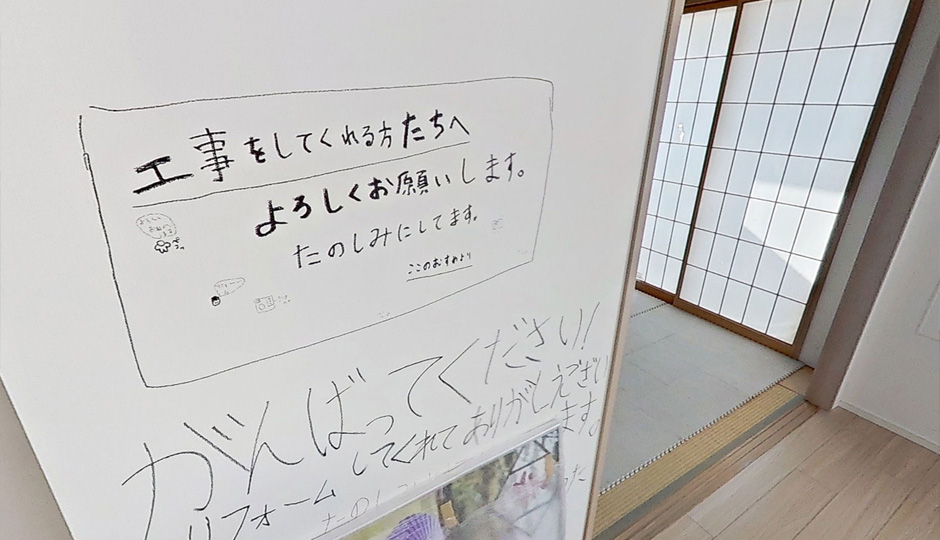 工事をしてくれる方たちへ
よろしくお願いします。
たのしみにしてます。
ここのおすめより
がんばってください!
リフォームしてくれてありがとうござい
ます。